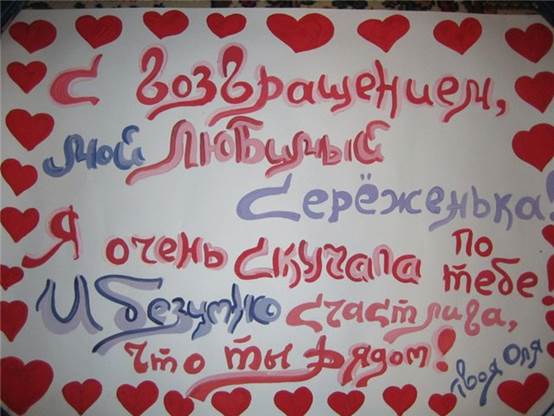 С возвращением,
мой Любимый
Серёженька!
Я очень скучала по тебе!
И безумно счастлива,
что ты рядом!
твоя Оля